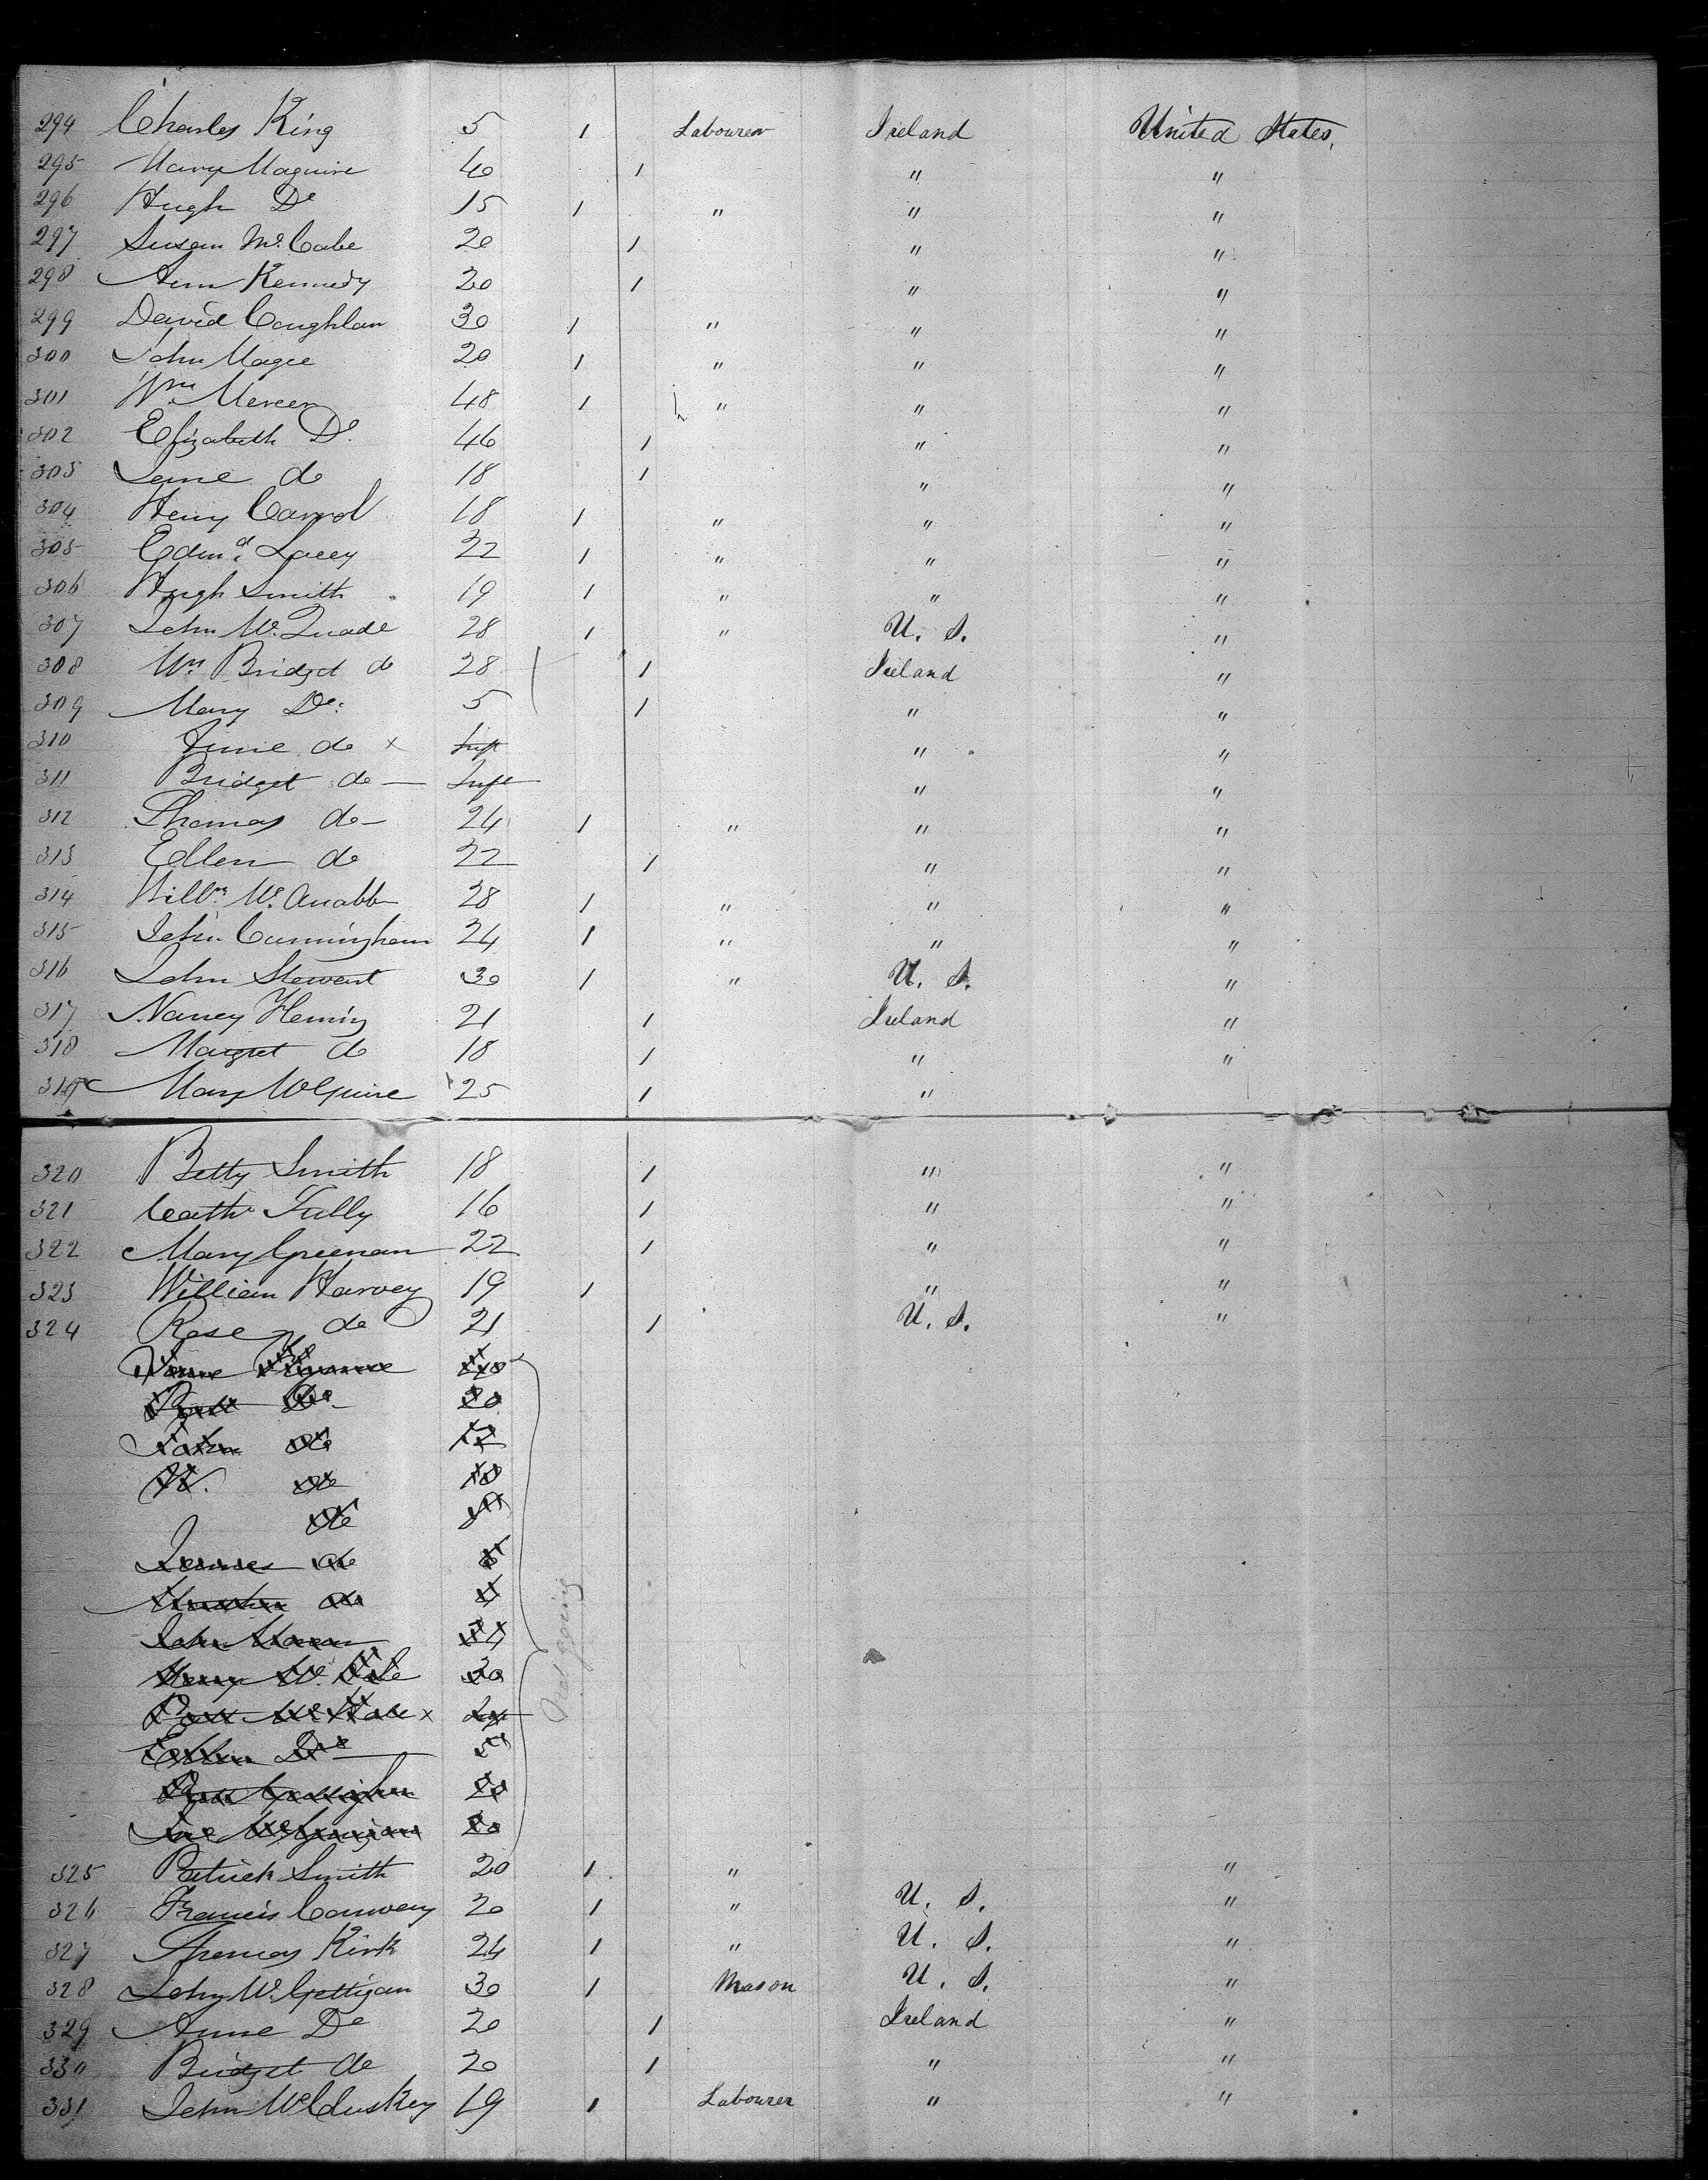 294 Charles King 5 1 Labourer Ireland United States,
295 Mary Maguire 40 1 " "
296 Hugh Do 15 1 " " "
297 Susan Mc.Cabe 20 1 " "
298 Ann Kennedy 20 1 " "
299 David Coughlan 30 1 " " "
300 John Magee 20 1 " " "
301 Wm. Mercer 48 1 " " "
302 Elizabeth Do. 46 1 " "
303 Jane do 18 1 " "
304 Henry Carrol 18 1 " " "
305 Edmd. Lacey 22 1 " " "
306 Hugh Smith 19 1 " " "
307 John Mc.Quade 28 1 " U. S. "
308 Mrs Bridget do 28 1 Ireland "
309 Mary Do: 5 1 " "
310 Anne do x Inft " "
311 Bridget do — Inft " "
312 Thomas do — 24 1 " " "
313 Ellen do 22 1 " "
314 Willm. Mc. 28 1 " " "
315 John Cunningham 24 1 " " "
316 John Stewart 30 1 " U. S. "
317 Nancy Fleming 21 1 Ireland "
318 Margret do 18 1 " "
319 Mary McGuire 25 1 "
320 Betty Smith 18 1 " "
321 Cathe Tully 16 1 " "
322 Mary Greenan 22 1 " "
323 William Harvey 19 1 " "
324 Rose do 21 1 U. S. "
Do. 20
John do 12
W. do 10
do
James do
do
John 24
Henry Mc. 30
x
Ellen Do
20
20
Not going
325 Patrick Smith 20 1 " "
326 Francis Conway 20 1 " U. S. "
327 Thomas Kirk 24 1 " U. S. "
328 John Mc.Gettigan 30 1 Mason U. S. "
329 Anne Do 20 1 Ireland "
330 Bridget do 20 1 " "
331 John McCluskey 19 1 Labourer " "